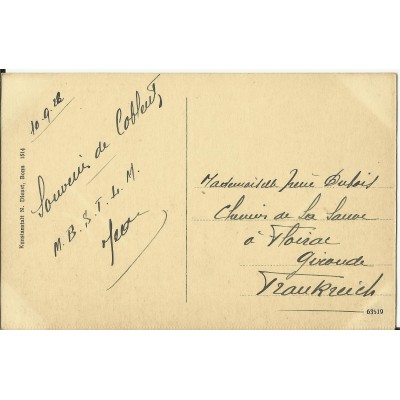 10.9.28
Souvenir de Coblentz
M. B. S. T. L. M.
Mademoiselle Irène Dubois
Chemin de La Sauve
à Floirac
Gironde
Frankreich
Kunstanstalt N. Disout, Bonn 1914
63519